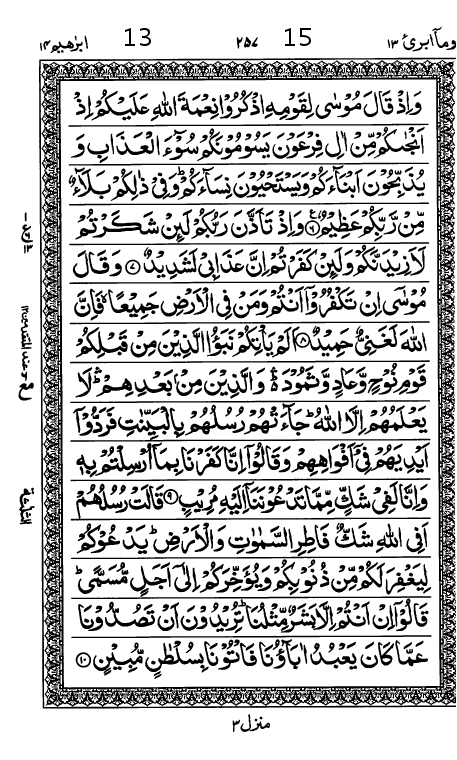 ومآ ابرئ ١٣ 15 ٢٥٧ 13 ابرٰهيم ١٤
وَاِذْ قَالَ مُوْسٰى لِقَوْمِهِ اذْكُرُوْا نِعْمَةَ اللّٰهِ عَلَيْكُمْ اِذْ
اَنْجٰىكُمْ مِّنْ اٰلِ فِرْعَوْنَ يَسُوْمُوْنَكُمْ سُوْٓءَ الْعَذَابِ وَ
يُذَبِّحُوْنَ اَبْنَآءَكُمْ وَيَسْتَحْيُوْنَ نِسَآءَكُمْ ؕ وَفِيْ ذٰلِكُمْ بَلَآءٌ
مِّنْ رَّبِّكُمْ عَظِيْمٌ ﴿۶﴾ وَاِذْ تَاَذَّنَ رَبُّكُمْ لَئِنْ شَكَرْتُمْ
لَاَزِيْدَنَّكُمْ وَلَئِنْ كَفَرْتُمْ اِنَّ عَذَابِيْ لَشَدِيْدٌ ﴿۷﴾ وَقَالَ
مُوْسٰٓى اِنْ تَكْفُرُوْٓا اَنْتُمْ وَمَنْ فِى الْاَرْضِ جَمِيْعًا ۙ فَاِنَّ
اللّٰهَ لَغَنِيٌّ حَمِيْدٌ ﴿۸﴾ اَلَمْ يَاْتِكُمْ نَبَؤُا الَّذِيْنَ مِنْ قَبْلِكُمْ
قَوْمِ نُوْحٍ وَّعَادٍ وَّثَمُوْدَ ۛؕ وَالَّذِيْنَ مِنْۢ بَعْدِهِمْ ۛؕ لَا
يَعْلَمُهُمْ اِلَّا اللّٰهُ ؕ جَآءَتْهُمْ رُسُلُهُمْ بِالْبَيِّنٰتِ فَرَدُّوْٓا
اَيْدِيَهُمْ فِيْٓ اَفْوَاهِهِمْ وَقَالُوْٓا اِنَّا كَفَرْنَا بِمَآ اُرْسِلْتُمْ بِهٖ
وَاِنَّا لَفِيْ شَكٍّ مِّمَّا تَدْعُوْنَنَآ اِلَيْهِ مُرِيْبٍ ﴿۹﴾ قَالَتْ رُسُلُهُمْ
اَفِى اللّٰهِ شَكٌّ فَاطِرِ السَّمٰوٰتِ وَالْاَرْضِ ؕ يَدْعُوْكُمْ
لِيَغْفِرَ لَكُمْ مِّنْ ذُنُوْبِكُمْ وَيُؤَخِّرَكُمْ اِلٰٓى اَجَلٍ مُّسَمًّى ؕ
قَالُوْٓا اِنْ اَنْتُمْ اِلَّا بَشَرٌ مِّثْلُنَا ؕ تُرِيْدُوْنَ اَنْ تَصُدُّوْنَا
عَمَّا كَانَ يَعْبُدُ اٰبَآؤُنَا فَاْتُوْنَا بِسُلْطٰنٍ مُّبِيْنٍ ﴿۱۰﴾
منزل ٣